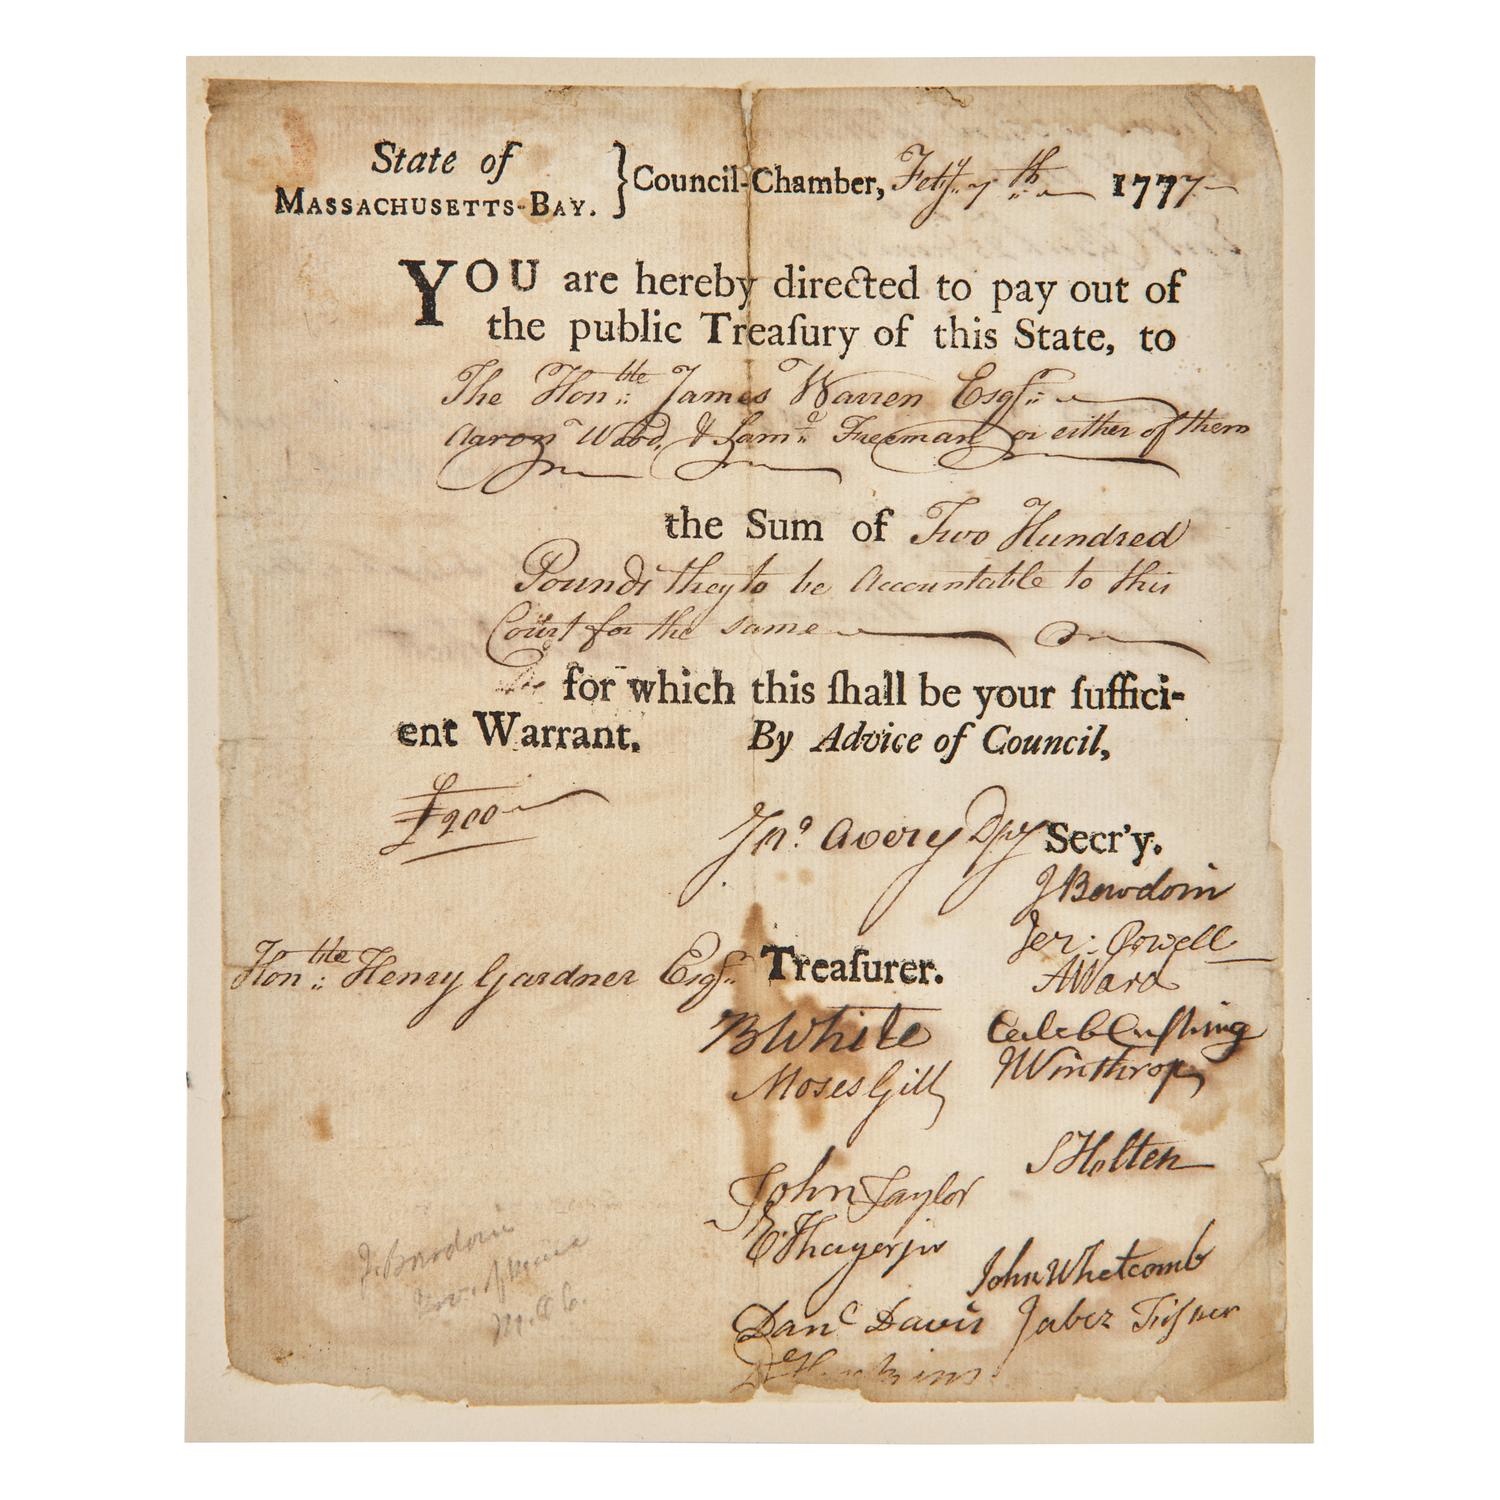 State of
MASSACHUSETTS-BAY. } Council-Chamber, Feby. 7th 1777
YOU are hereby directed to pay out of
the public Treaſury of this State, to
The Honble James Warren Esqr.
Aaron Wood, & Samd. Freeman or either of them
the Sum of Two Hundred
Pounds they to be Accountable to this
Court for the same
for which this ſhall be your ſuffici-
ent Warrant. By Advice of Council,
£200
Jno. Avery Dpy Secr'y.
J Bowdoin
Jer: Powell
Honble Henry Gardner Esqr. Treaſurer.
A Ward
B White Caleb Cuſhing
Moses Gill J Winthrop
S Holten
John Taylor
E Thayer jr
John Whetcomb
Danl Davis Jabez Fiſher
D Hopkins
J. Bowdoin